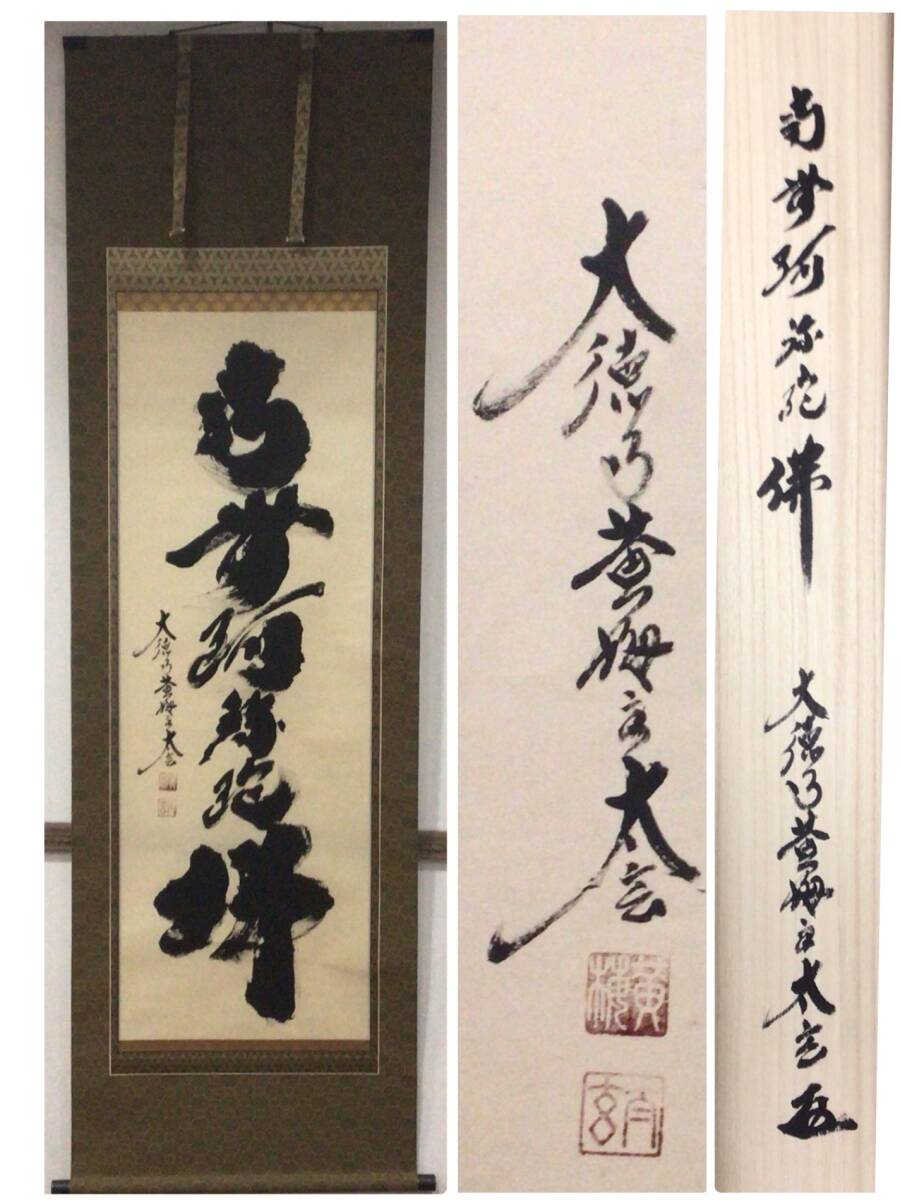 南無阿弥陀佛
大徳寺黄梅主太玄
大徳寺黄梅主太玄
黄梅
南無阿弥陀佛
大徳寺黄梅主太玄